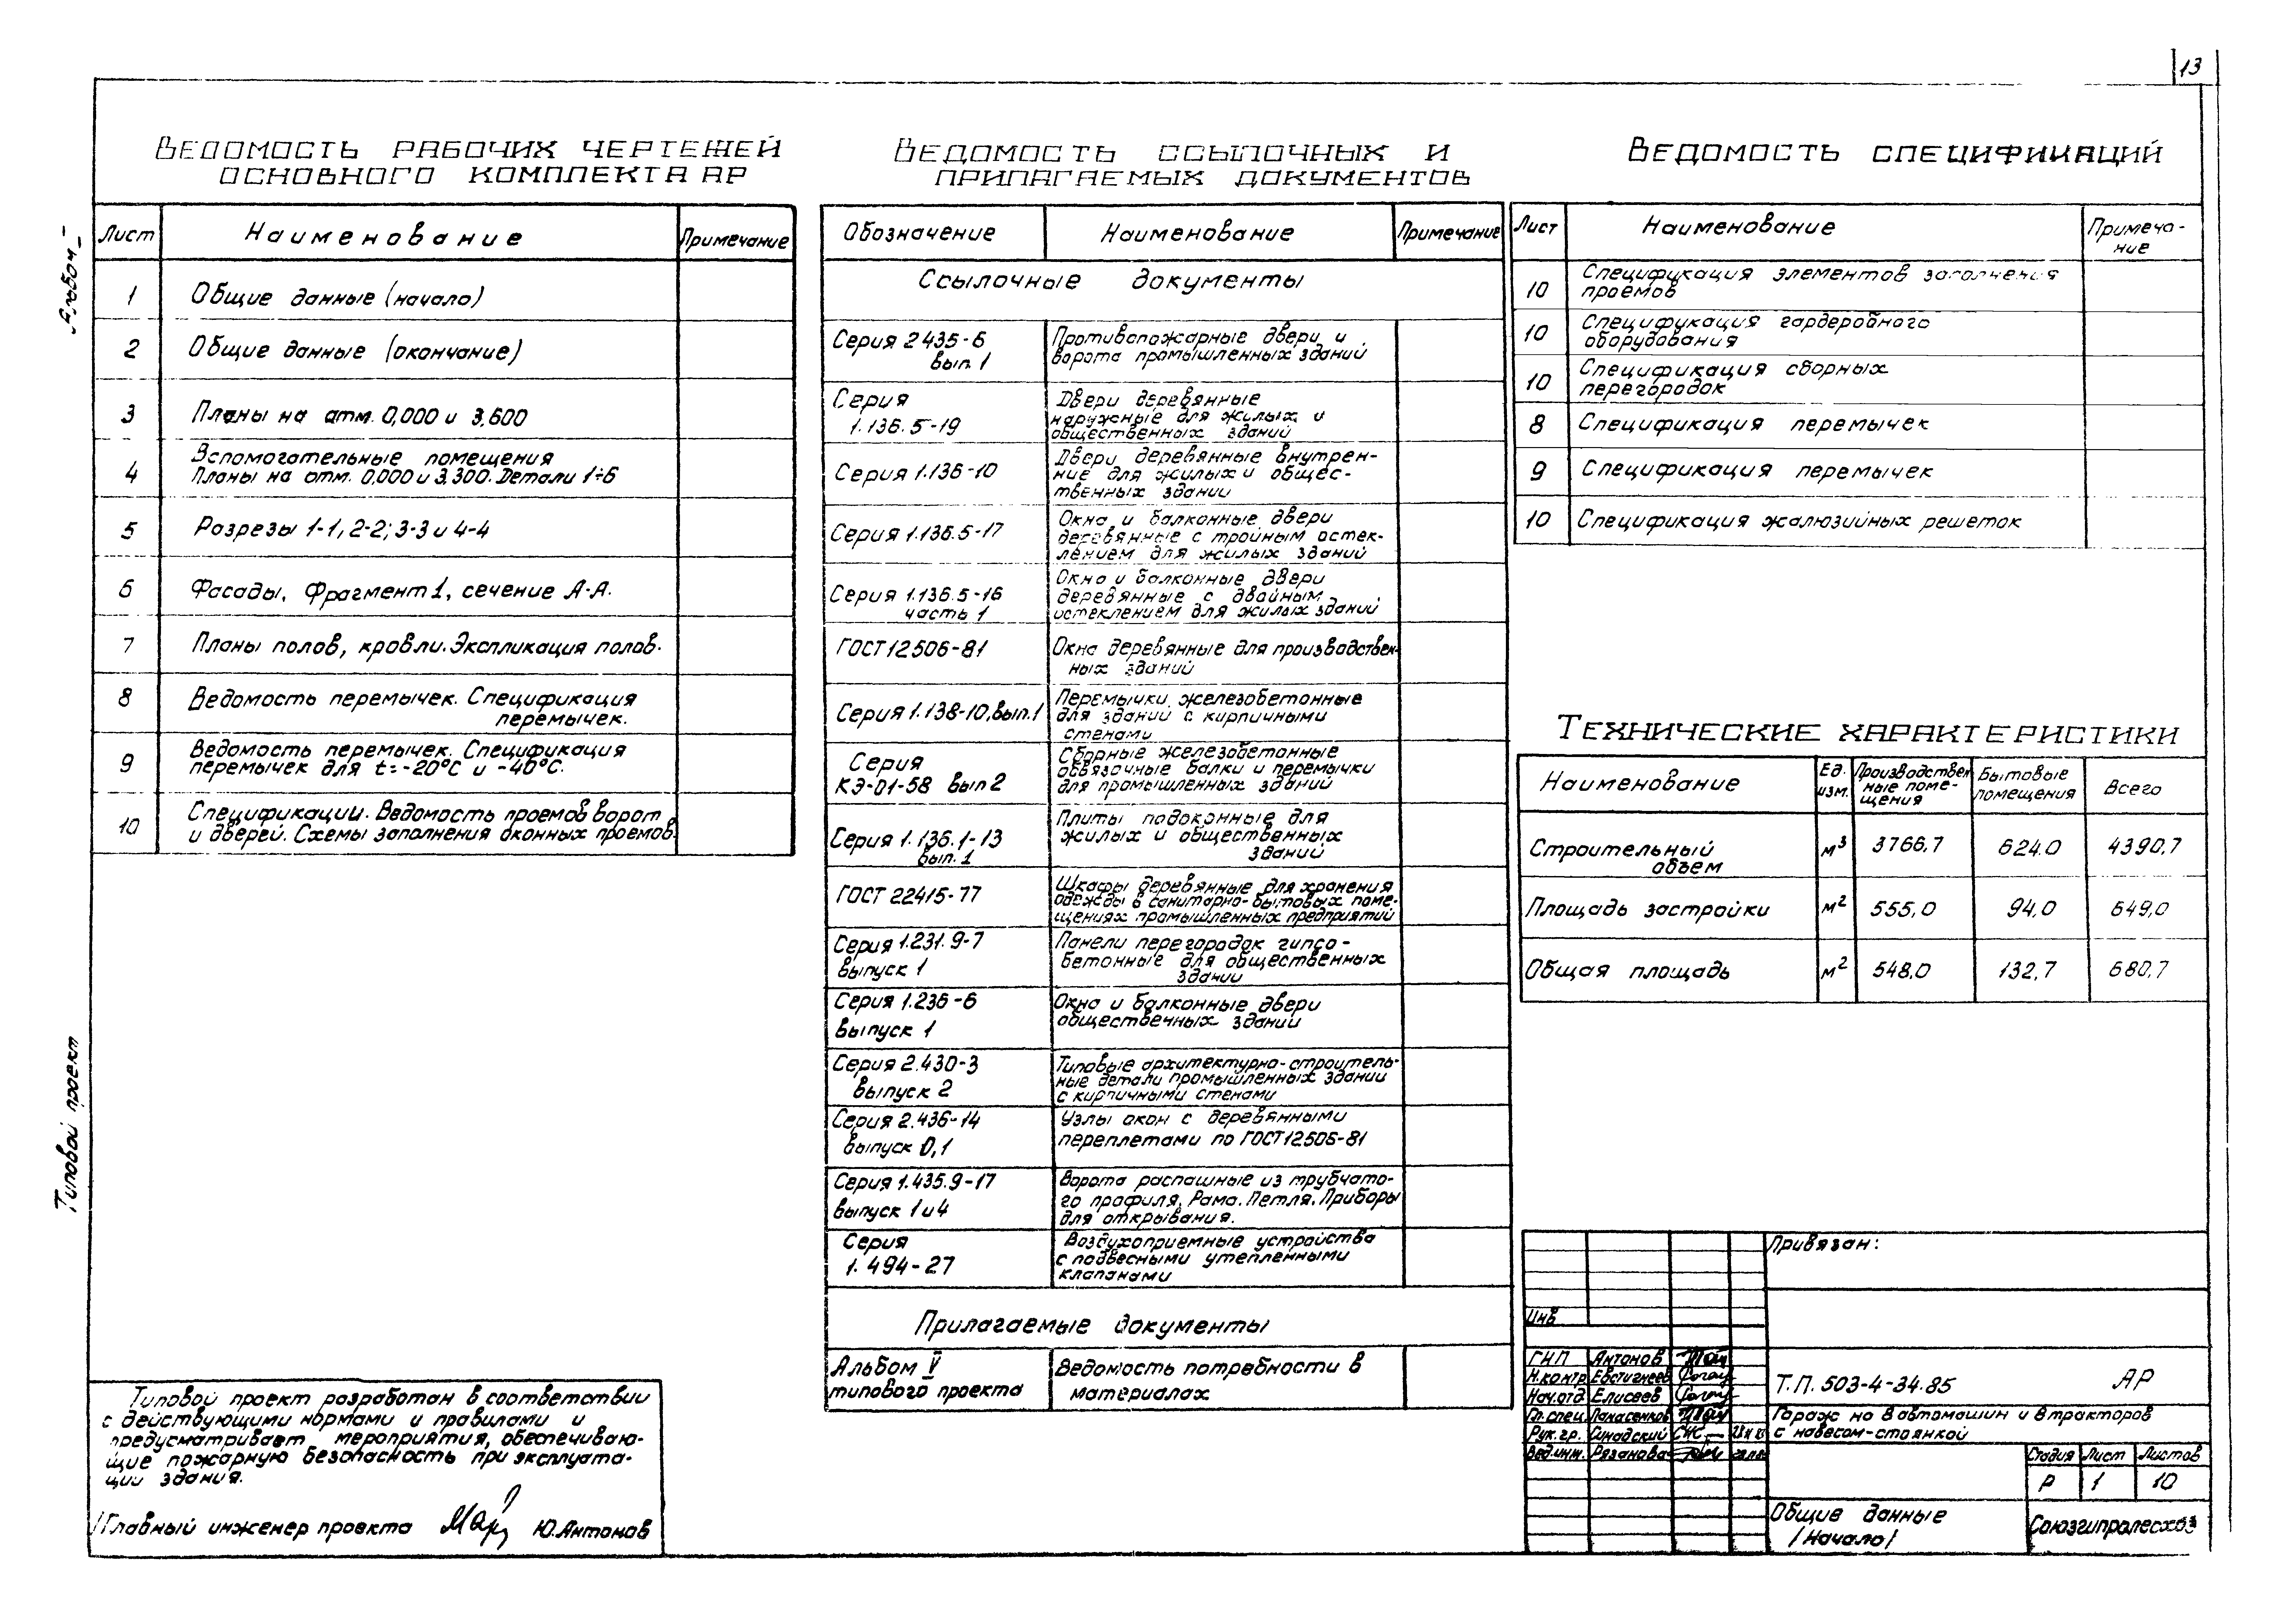 13
Альбом I
Типовой проект
Ведомость рабочих чертежей
основного комплекта АР
Лист Наименование Примечание
1 Общие данные (начало)
2 Общие данные (окончание)
3 Планы на отм. 0,000 и 3,600
4 Вспомогательные помещения
Планы на отм. 0,000 и 3,300. Детали 1÷6
5 Разрезы 1-1, 2-2; 3-3 и 4-4
6 Фасады, Фрагмент 1, сечение А-А.
7 Планы полов, кровли. Экспликация полов.
8 Ведомость перемычек. Спецификация
перемычек.
9 Ведомость перемычек. Спецификация
перемычек для t=-20°С и -40°С.
10 Спецификации. Ведомость проемов ворот
и дверей. Схемы заполнения оконных проемов.
Ведомость ссылочных и
прилагаемых документов
Обозначение Наименование Примечание
Ссылочные документы
Серия 2435-6
вып. 1
Противопожарные двери и
ворота промышленных зданий
Серия
1.136.5-19
Двери деревянные
наружные для жилых и
общественных зданий
Серия 1.136-10
Двери деревянные внутрен-
ние для жилых и общес-
твенных здании
Серия 1.136.5-17
Окна и балконные двери
деревянные с тройным остек-
лением для жилых зданий
Серия 1.136.5-16
часть 1
Окна и балконные двери
деревянные с двойным
остеклением для жилых зданий
ГОСТ 12506-81
Окна деревянные для производствен-
ных зданий
Серия 1.138-10, вып. 1
Перемычки железобетонные
для зданий с кирпичными
стенами
Серия
КЭ-01-58 вып 2
Сборные железобетонные
обвязочные балки и перемычки
для промышленных зданий
Серия 1.136.1-13
вып. 1
Плиты подоконные для
жилых и общественных
зданий
ГОСТ 22415-77
Шкафы деревянные для хранения
одежды в санитарно-бытовых поме-
щениях промышленных предприятий
Серия 1.231.9-7
выпуск 1
Панели перегородок гипсо-
бетонные для общественных
зданий
Серия 1.236-6
выпуск 1
Окна и балконные двери
общественных зданий
Серия 2.430-3
выпуск 2
Типовые архитектурно-строитель-
ные детали промышленных здании
с кирпичными стенами
Серия 2.436-14
выпуск 0,1
Узлы окон с деревянными
переплетами по ГОСТ 12506-81
Серия 1.435.9-17
выпуск 1 и 4
Ворота распашные из трубчато-
го профиля. Рама. Петля. Приборы
для открывания.
Серия
1.494-27
Воздухоприемные устройства
с подвесными утепленными
клапанами
Прилагаемые документы
Альбом V
типового проекта
Ведомость потребности в
материалах
Ведомость спецификаций
Лист Наименование Примеча-
ние
10 Спецификация элементов заполнения
проемов
10 Спецификация гардеробного
оборудования
10 Спецификация сборных
перегородок
8 Спецификация перемычек
9 Спецификация перемычек
10 Спецификация жалюзийных решеток
Технические характеристики
Наименование Ед. изм. Производствен ные поме- щения Бытовые помещения Всего
Строительный объем м³ 3766,7 624.0 4390,7
Площадь застройки м² 555,0 94,0 649,0
Общая площадь м² 548.0 132,7 680,7
Типовой проект разработан в соответствии
с действующими нормами и правилами и
предусматривает мероприятия, обеспечиваю-
щие пожарную безопасность при эксплуата-
ции здания.
Главный инженер проекта Ю. Антонов
Привязан:
Инв
ГИП Антонов
Н.контр Евстигнеев
Нач.отд Елисеев
Гл.спец. Панасенков
Рук.гр. Синадский
Вед.инж. Рязанова
Т.П. 503-4-34.85 АР
Гараж на 8 автомашин и 8 тракторов
с навесом-стоянкой
Стадия Лист Листов
Р 1 10
Общие данные
(Начало)
Союзгипролесхоз